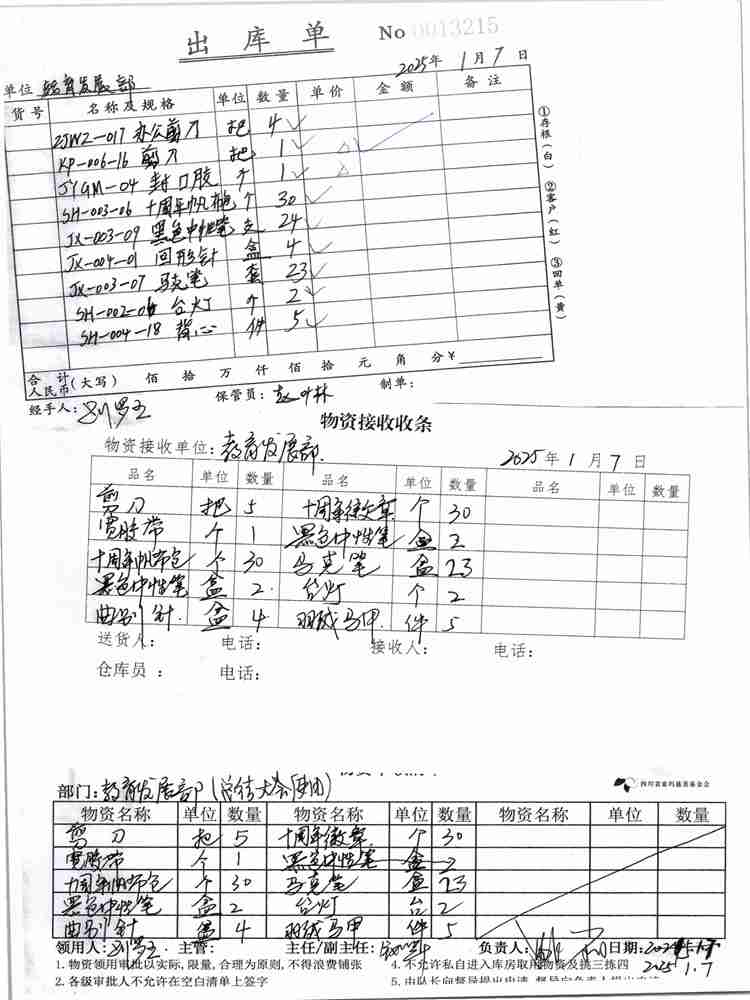 出库单 No 0013215
2025年 1月 7日
单位 教育发展部
货号 名称及规格 单位 数量 单价 金额 备注
ZJWZ-017 办公剪刀 把 4
KP-006-16 剪刀 把 1
JYGM-04 封口胶 个 1
SH-003-06 十周年帆布包 个 30
JX-003-09 黑色中性笔 支 24
JX-004-01 回形针 盒 4
JX-003-07 马克笔 套 23
SH-002-06 台灯 个 2
SH-004-18 背心 件 5
①存根(白) ②客户(红) ③回单(黄)
合计人民币(大写) 佰 拾 万 仟 佰 拾 元 角 分¥
经手人: 保管员: 制单:
物资接收收条
物资接收单位: 教育发展部. 2025年 1月 7日
品名 单位 数量 品名 单位 数量 品名 单位 数量
剪刀 把 5 十周年徽章 个 30
宽胶带 个 1 黑色中性笔 盒 2
十周年帆布包 个 30 马克笔 盒 23
黑色中性笔 盒 2. 台灯 个 2
曲别针. 盒 4 羽绒马甲. 件 5
送货人: 电话: 接收人: 电话:
仓库员: 电话:
部门: 教育发展部(总结大会使用)
物资名称 单位 数量 物资名称 单位 数量 物资名称 单位 数量
剪刀 把 5 十周年徽章 个 30
宽胶带 个 1 黑色中性笔 盒 2
十周年帆布包 个 30 马克笔 盒 23
黑色中性笔 盒 2 台灯 台 2
曲别针 盒 4 羽绒马甲 件 5
领用人: 主管: 主任/副主任: 负责人: 日期:
2025.1.7
1.物资领用审批以实际,限量,合理为原则,不得浪费铺张 4.不允许私自进入库房取用物资及挑三拣四
2.各级审批人不允许在空白清单上签字